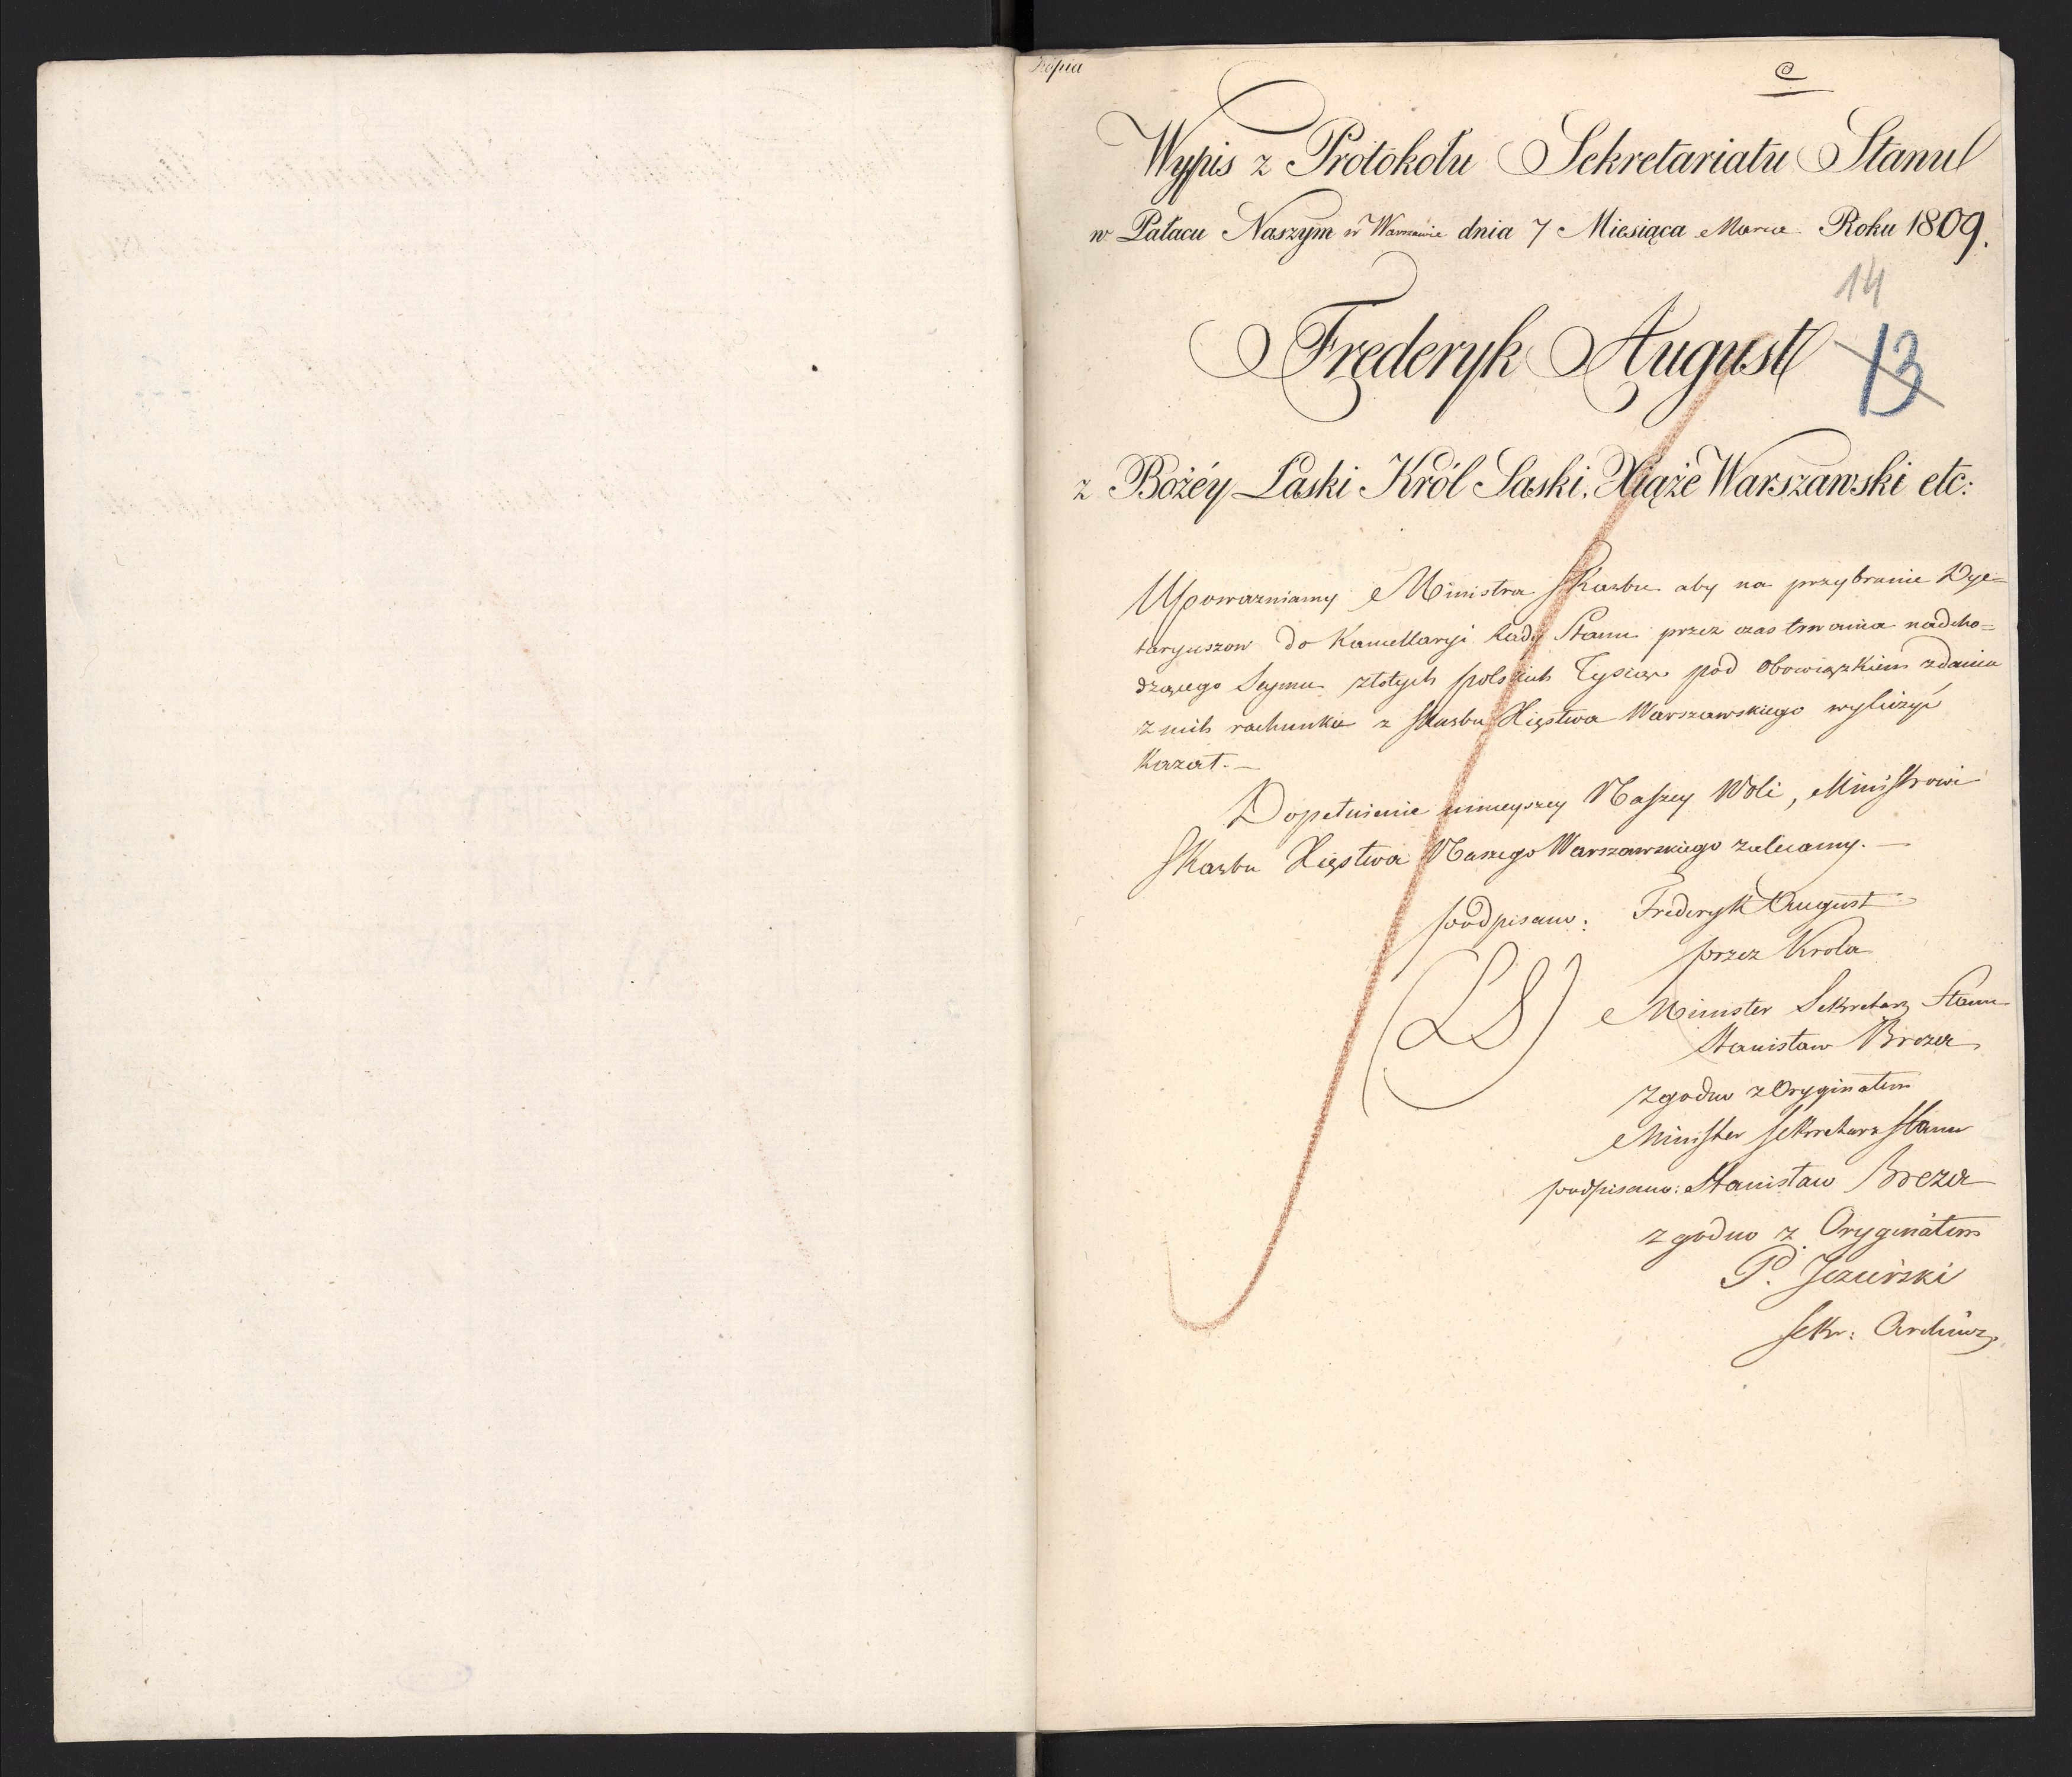 Kopia
Wypis z Protokołu Sekretariatu Stanu
w Pałacu Naszym w Warszawie dnia 7 Miesiąca Marca Roku 1809.
14
13
Frederyk August
z Bożéy Łaski Król Saski, Xiąże Warszawski etc:
Upoważniamy Ministra Skarbu aby na przybranie Dye=
taryuszow do Kancellaryi Rady Stanu przez czas trwania nadcho=
dzącego Seymu złotych polskich Tysiąc pod obowiązkiem zdania
z nich rachunku z Skarbu Xięstwa Warszawskiego wyliczyć
kazał.—
Dopełnienie ninieyszey Naszey Woli, Ministrowi
Skarbu Xięstwa Naszego Warszawskiego zalecamy.—
podpisano: Frederyk August
przez Krola
(LS) Minister Sekretarz Stanu
Stanisław Breza
zgodno z Oryginałem
Minister Sekretarz Stanu
podpisano: Stanisław Breza
zgodno z Oryginałem
P. Jezierski
Sekr: Archiwz